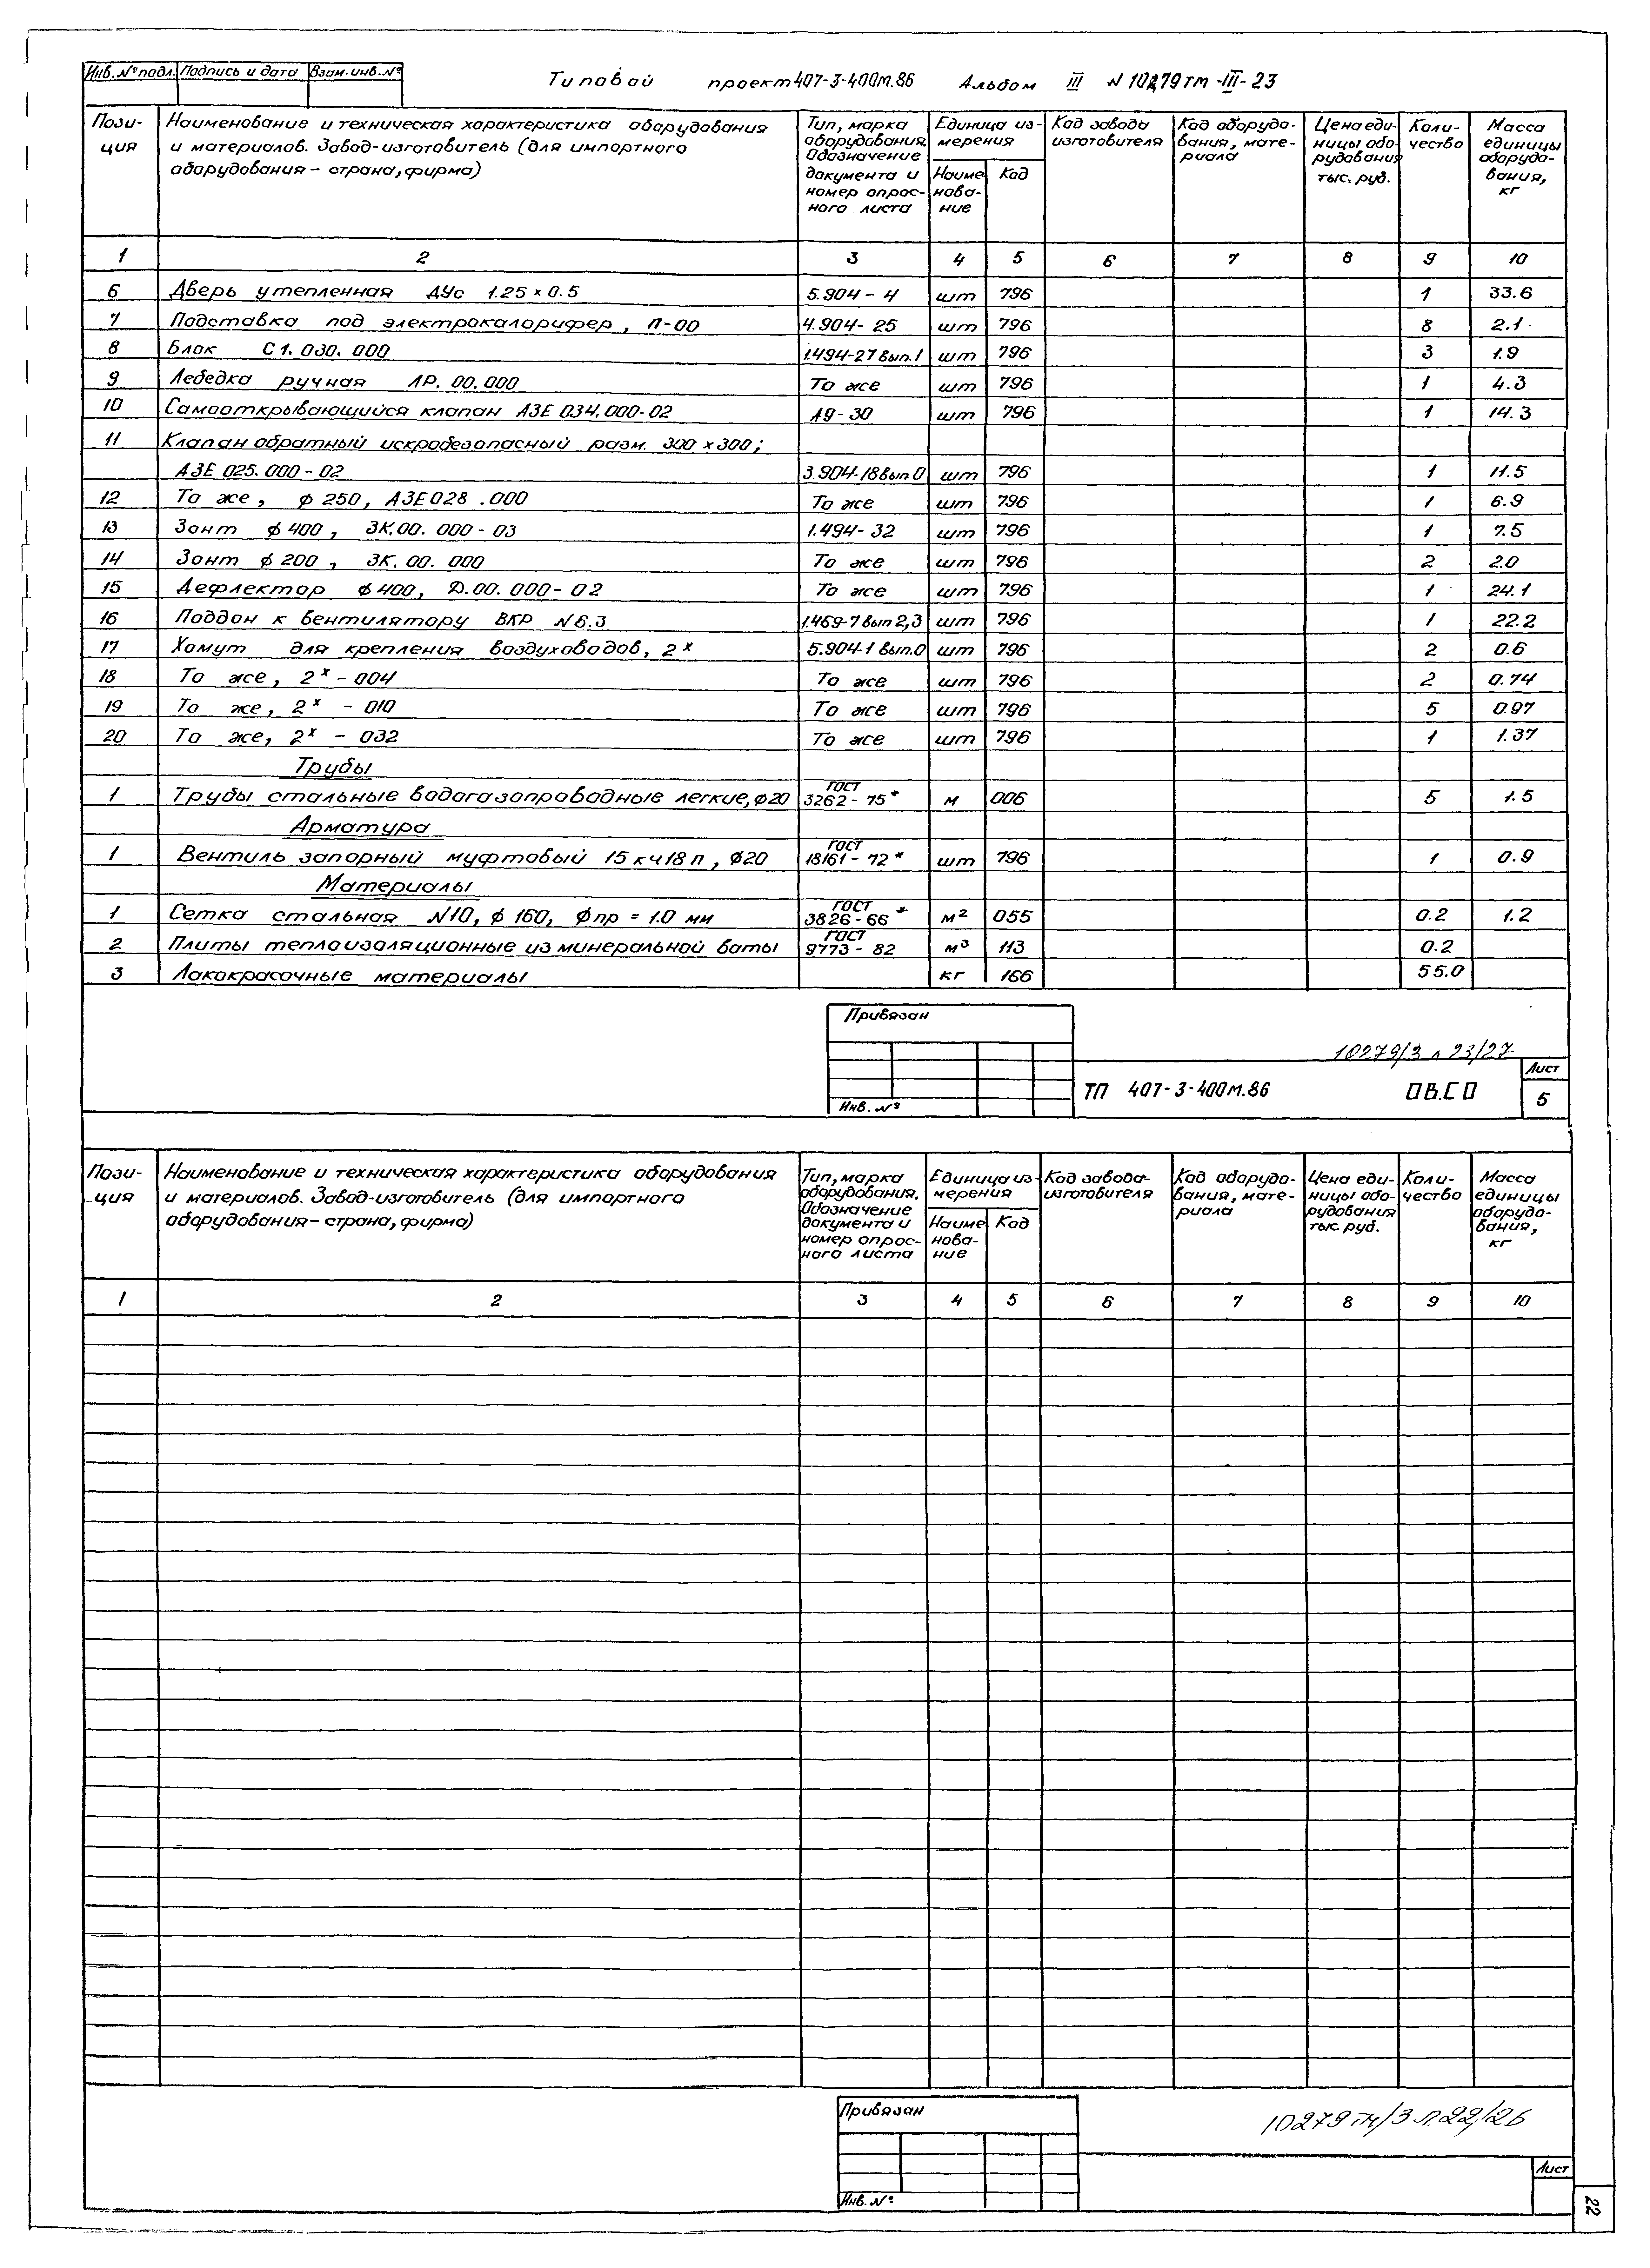 Инв. № подл. Подпись и дата Взам. инв. №
Типовой проект 407-3-400м.86 Альбом III N 10279тм-III-23
Пози-
ция
Наименование и техническая характеристика оборудования
и материалов. Завод-изготовитель (для импортного
оборудования - страна, фирма)
Тип, марка
оборудования.
Обозначение
документа и
номер опрос-
ного листа
Единица из-
мерения
Наиме
нова-
ние
Код
Код завода
изготовителя
Код оборудо-
вания, мате-
риала
Цена еди-
ницы обо-
рудования
тыс. руб.
Коли-
чество
Масса
единицы
оборудо-
вания,
кг
1 2 3 4 5 6 7 8 9 10
6 Дверь утепленная ДУс 1.25 х 0.5 5.904 - 4 шт 796 1 33.6
7 Подставка под электрокалорифер, П-00 4.904 - 25 шт 796 8 2.1
8 Блок С1. 030. 000 1.494-27 вып.1 шт 796 3 1.9
9 Лебедка ручная ЛР. 00.000 То же шт 796 1 4.3
10 Самооткрывающийся клапан АЗЕ 034.000-02 А9-30 шт 796 1 14.3
11 Клапан обратный искробезопасный разм. 300 х 300;
АЗЕ 025.000 - 02 3.904-18 вып.0 шт 796 1 11.5
12 То же, ф 250, АЗЕ 028 .000 То же шт 796 1 6.9
13 Зонт ф 400, ЗК.00. 000 - 03 1.494 - 32 шт 796 1 7.5
14 Зонт ф 200, ЗК. 00. 000 То же шт 796 2 2.0
15 Дефлектор ф 400, Д.00. 000 - 02 То же шт 796 1 24.1
16 Поддон к вентилятору ВКР N 6.3 1.469-7 вып 2,3 шт 796 1 22.2
17 Хомут для крепления воздуховодов, 2ˣ 5.904-1 вып.0 шт 796 2 0.6
18 То же, 2ˣ - 004 То же шт 796 2 0.74
19 То же, 2ˣ - 010 То же шт 796 5 0.97
20 То же, 2ˣ - 032 То же шт 796 1 1.37
Трубы
1 Трубы стальные водогазопроводные легкие, ф20 ГОСТ 3262 - 75* м 006 5 1.5
Арматура
1 Вентиль запорный муфтовый 15 кч 18 п, ф20 ГОСТ 18161 - 72* шт 796 1 0.9
Материалы
1 Сетка стальная N10, ф 160, ф пр = 1.0 мм ГОСТ 3826 - 66* м² 055 0.2 1.2
2 Плиты теплоизоляционные из минеральной ваты ГОСТ 9773 - 82 м³ 113 0.2
3 Лакокрасочные материалы кг 166 55.0
Привязан
Инв. №
10279/3 л 23/27
ТП 407-3-400м.86 ОВ.СО
Лист
5
Пози-
ция
Наименование и техническая характеристика оборудования
и материалов. Завод-изготовитель (для импортного
оборудования - страна, фирма)
Тип, марка
оборудования.
Обозначение
документа и
номер опрос-
ного листа
Единица из-
мерения
Наиме
нова-
ние
Код
Код завода-
изготовителя
Код оборудо-
вания, мате-
риала
Цена еди-
ницы обо-
рудования
тыс. руб.
Коли-
чество
Масса
единицы
оборудо-
вания,
кг
1 2 3 4 5 6 7 8 9 10
Привязан
Инв. №
10279тм/3 л.22/26
Лист
22